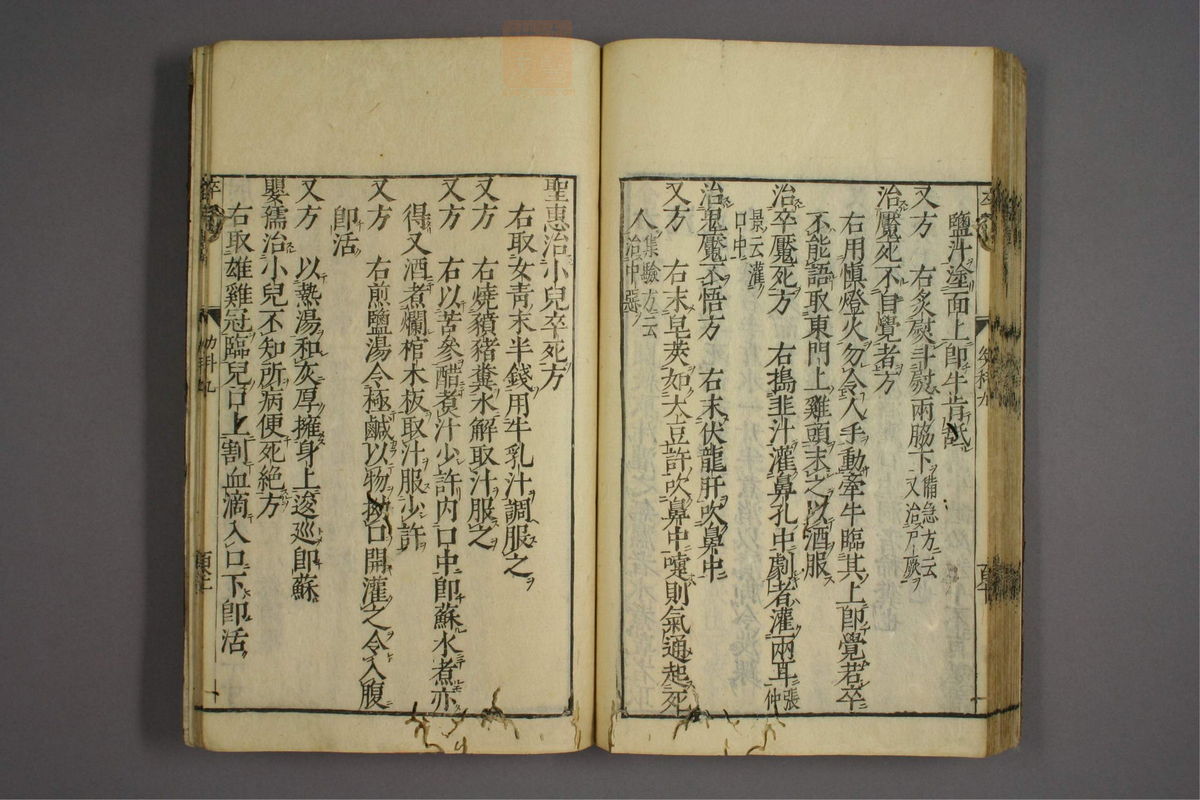 鹽汁塗面上即牛肯舐
又方　右炙熨斗熨兩脇下備急方云又治尸厥
治魘死不自覺者方
右用愼燈火勿令人手動牽牛臨其上即覺若卒
不能語取東門上雞頭末之以酒服
治卒魘死方　右搗韭汁灌鼻孔中劇者灌兩耳張仲
景云灌口中
治鬼魘不悟方　右末伏龍肝吹鼻中
又方　右末皂莢如大豆許吹鼻中嚏則氣通起死
人集驗方云治中惡
聖惠治小兒卒死方
右取女青末半錢用牛乳汁調服之
又方　右燒豶猪糞水解取汁服之
又方　右以苦參醋煮汁少許內口中即蘇水煮亦
得又酒煮爛棺木板取汁服少許
又方　右煎鹽湯令極鹹以物拗口開灌之令入腹
即活
又方　以熱湯和灰厚擁身上逡巡即蘇
嬰孺治小兒不知所病便死絕方
右取雄雞冠臨兒口上割血滴入口下即活